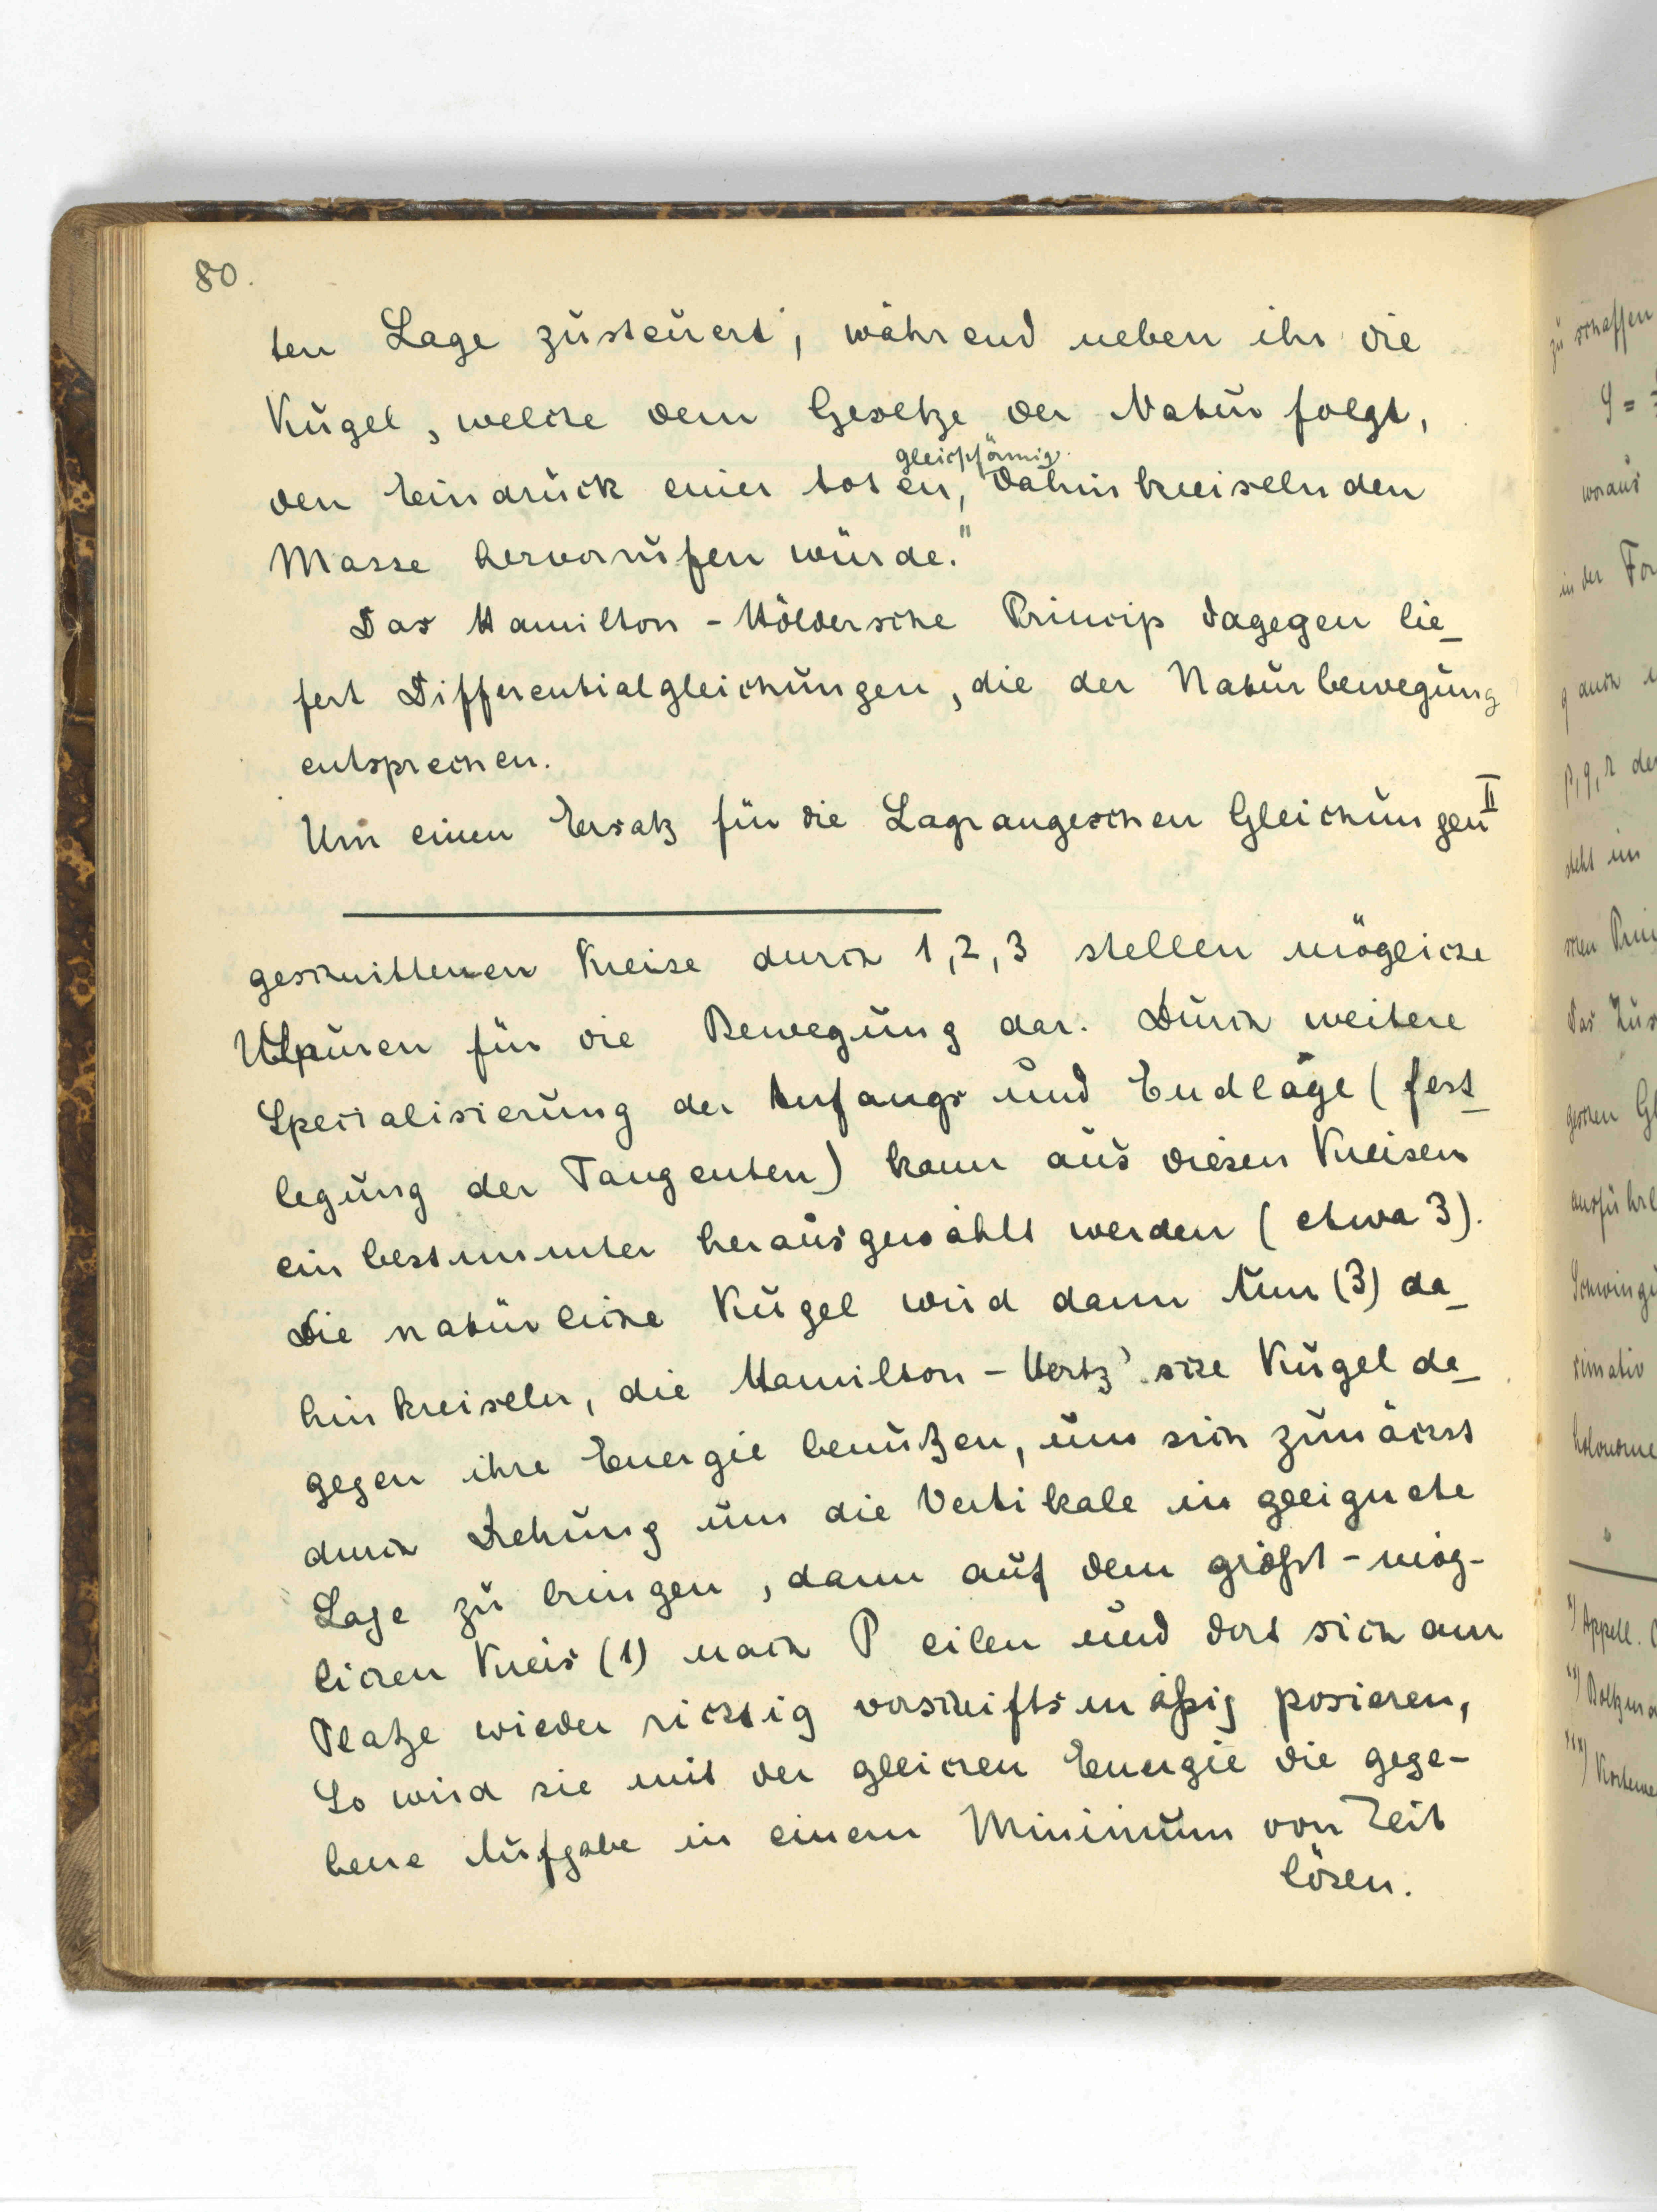 80.
ten Lage zusteuert, während neben ihr die
Kugel, welche dem Gesetze der Natur folgt,
gleichförmig
den Eindruck einer toten, dahinkreiselnden
Masse hervorrufen würde."
Das Hamilton-Höldersche Princip dagegen lie-
fert Differentialgleichungen, die der Naturbewegung
entsprechen.
Um einen Ersatz für die Lagrangeschen Gleichungen II
geschnittenen Kreise durch 1,2,3 stellen mögliche
Spuren für die Bewegung dar. Durch weitere
Specialisierung der Anfangs und Endlage (fest-
legung der Tangenten) kann aus diesen Kreisen
ein bestimmter herausgewählt werden (etwa 3).
Die natürliche Kugel wird dann nun (3) da-
hin kreiseln, die Hamilton-Hertz'sche Kugel da-
gegen ihre Energie benützen, um sich zunächst
durch Drehung um die Vertikale in geeignete
Lage zu bringen, dann auf dem größt-mög-
lichen Kreis (1) nach P eilen und dort sich am
Platze wieder richtig vorschriftsmäßig posieren,
So wird sie mit der gleichen Energie die gege-
bene Aufgabe in einem Minimum von Zeit
lösen.
zu schaffen
woraus
in der
p, q, r
steht im